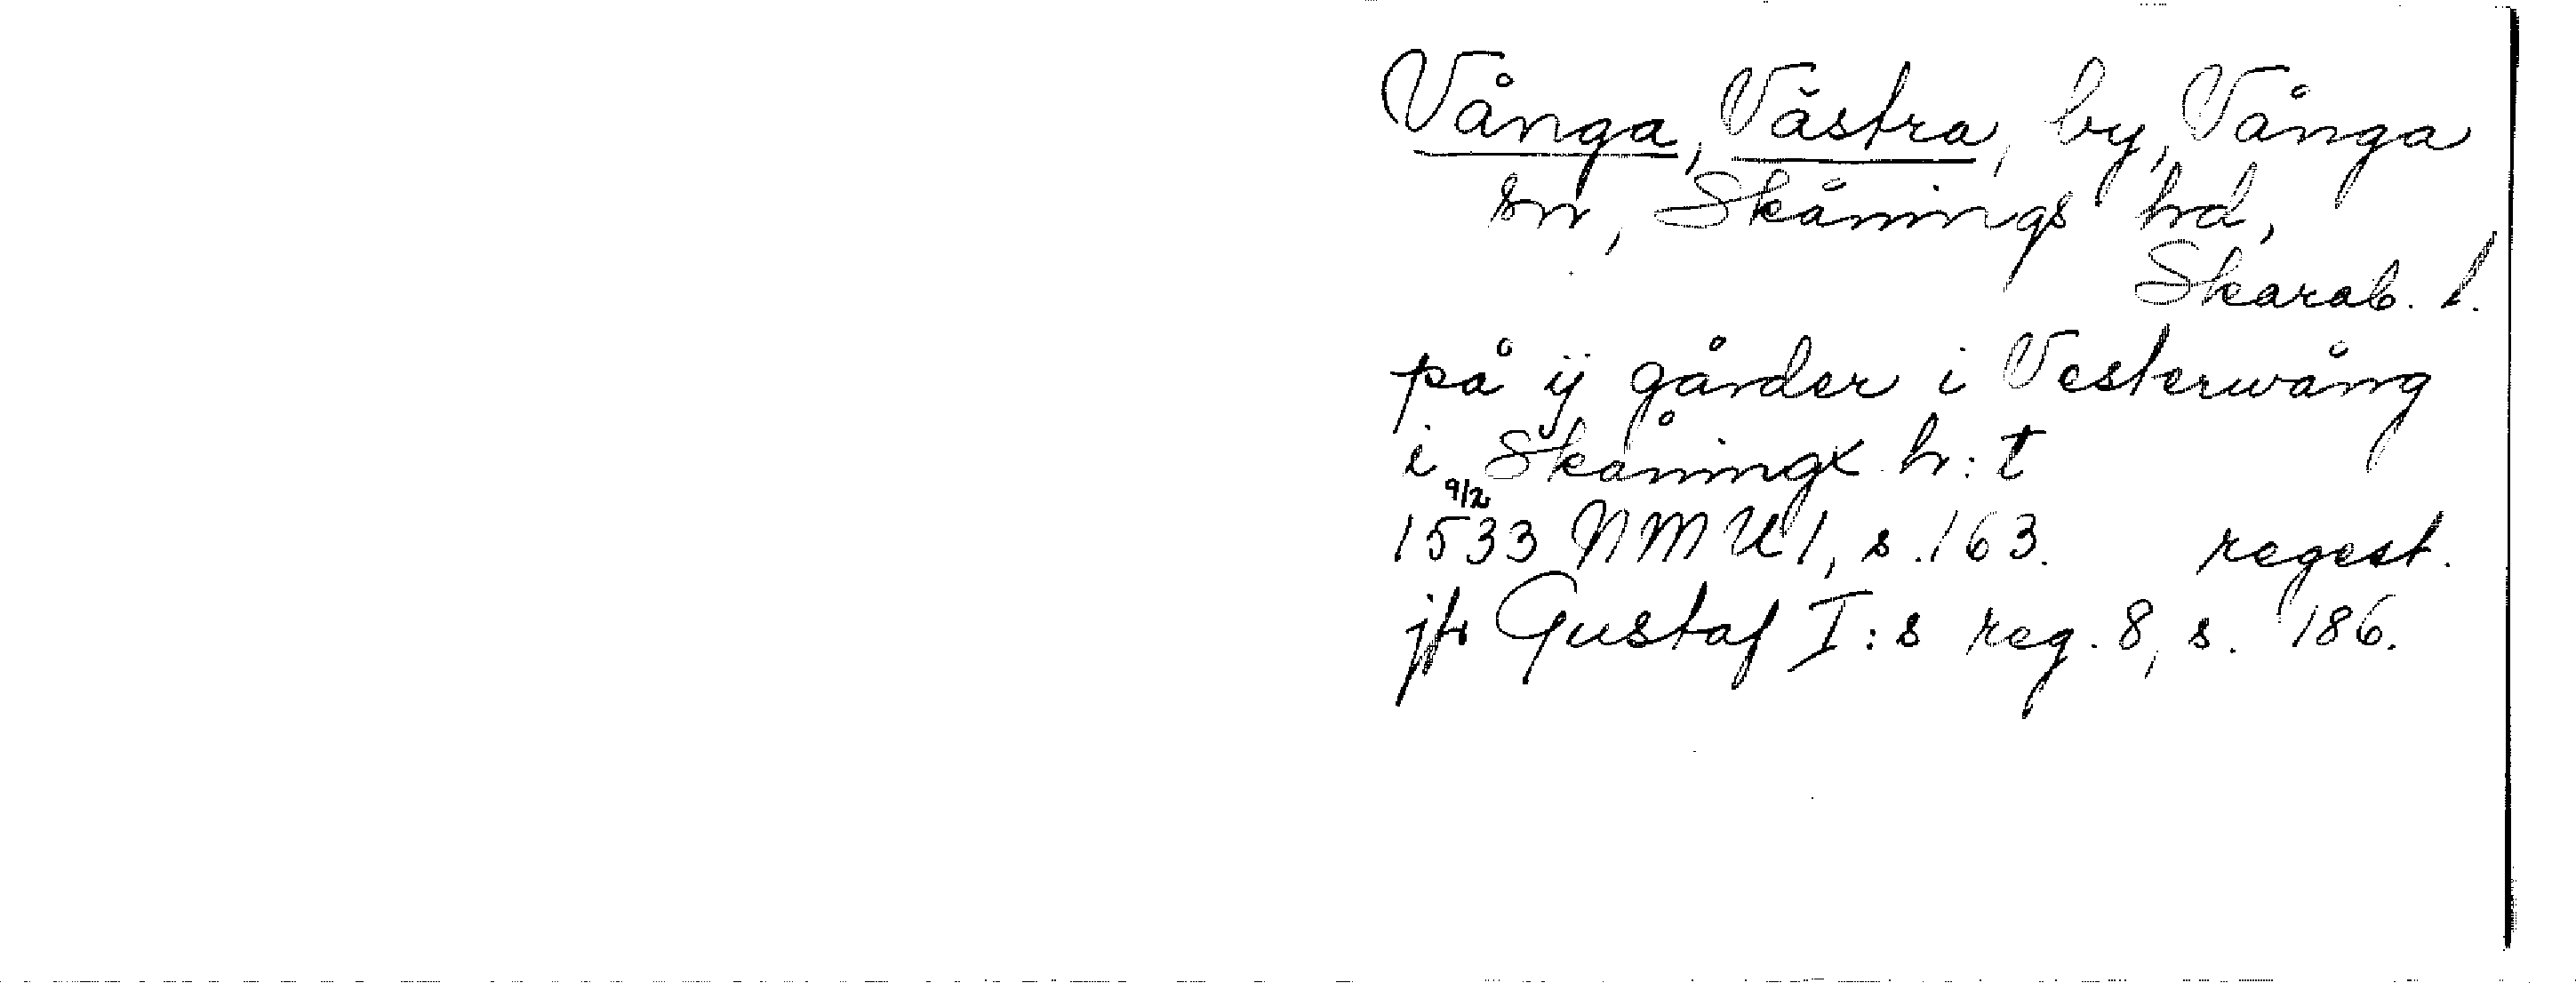 Vånga, Västra, by, Vånga
sn, Skånings hd,
Skarab. l.
på ij gårder i Vesterwång
i Skåningx h:t
9/2
1533 NMU 1, s. 163. regest.
jfr Gustaf I:s reg. 8, s. 186.